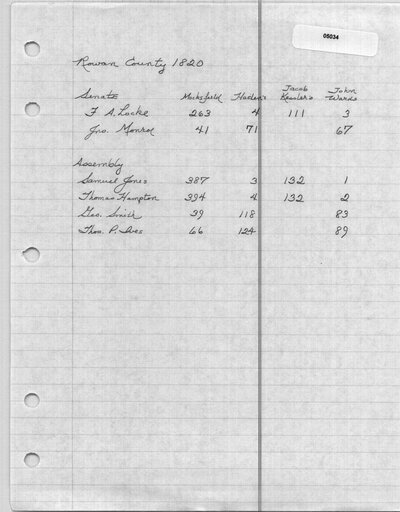 05034
Rowan County 1820
Senate Mocksfield Haden's Jacob Kesler's John Wards
F A. Locke 263 4 111 3
Jno. Monroe 41 71 67
Assembly
Samuel Jones 387 3 132 1
Thomas Hampton 394 4 132 2
Geo. Smith 39 118 83
Thos. P. Ives 66 124 89